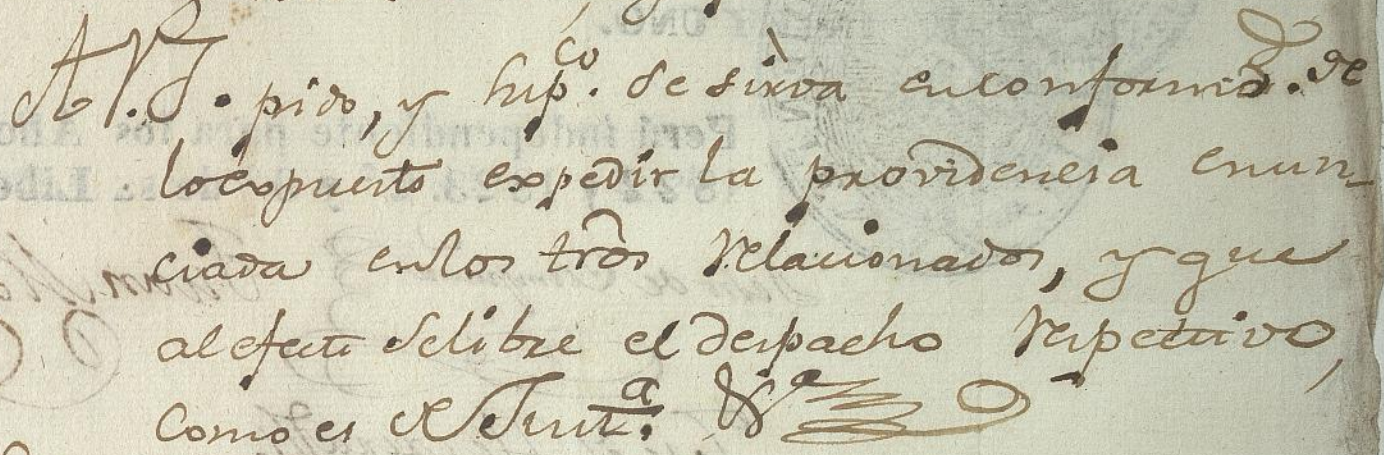 A V. S. pido, y sup.co se sirva en conformid.d de
lo expuesto expedir la providencia enun-
ciada en los trōs relacionados, y que
al efecto se libre el despacho respectivo,
como es de Just.a &a